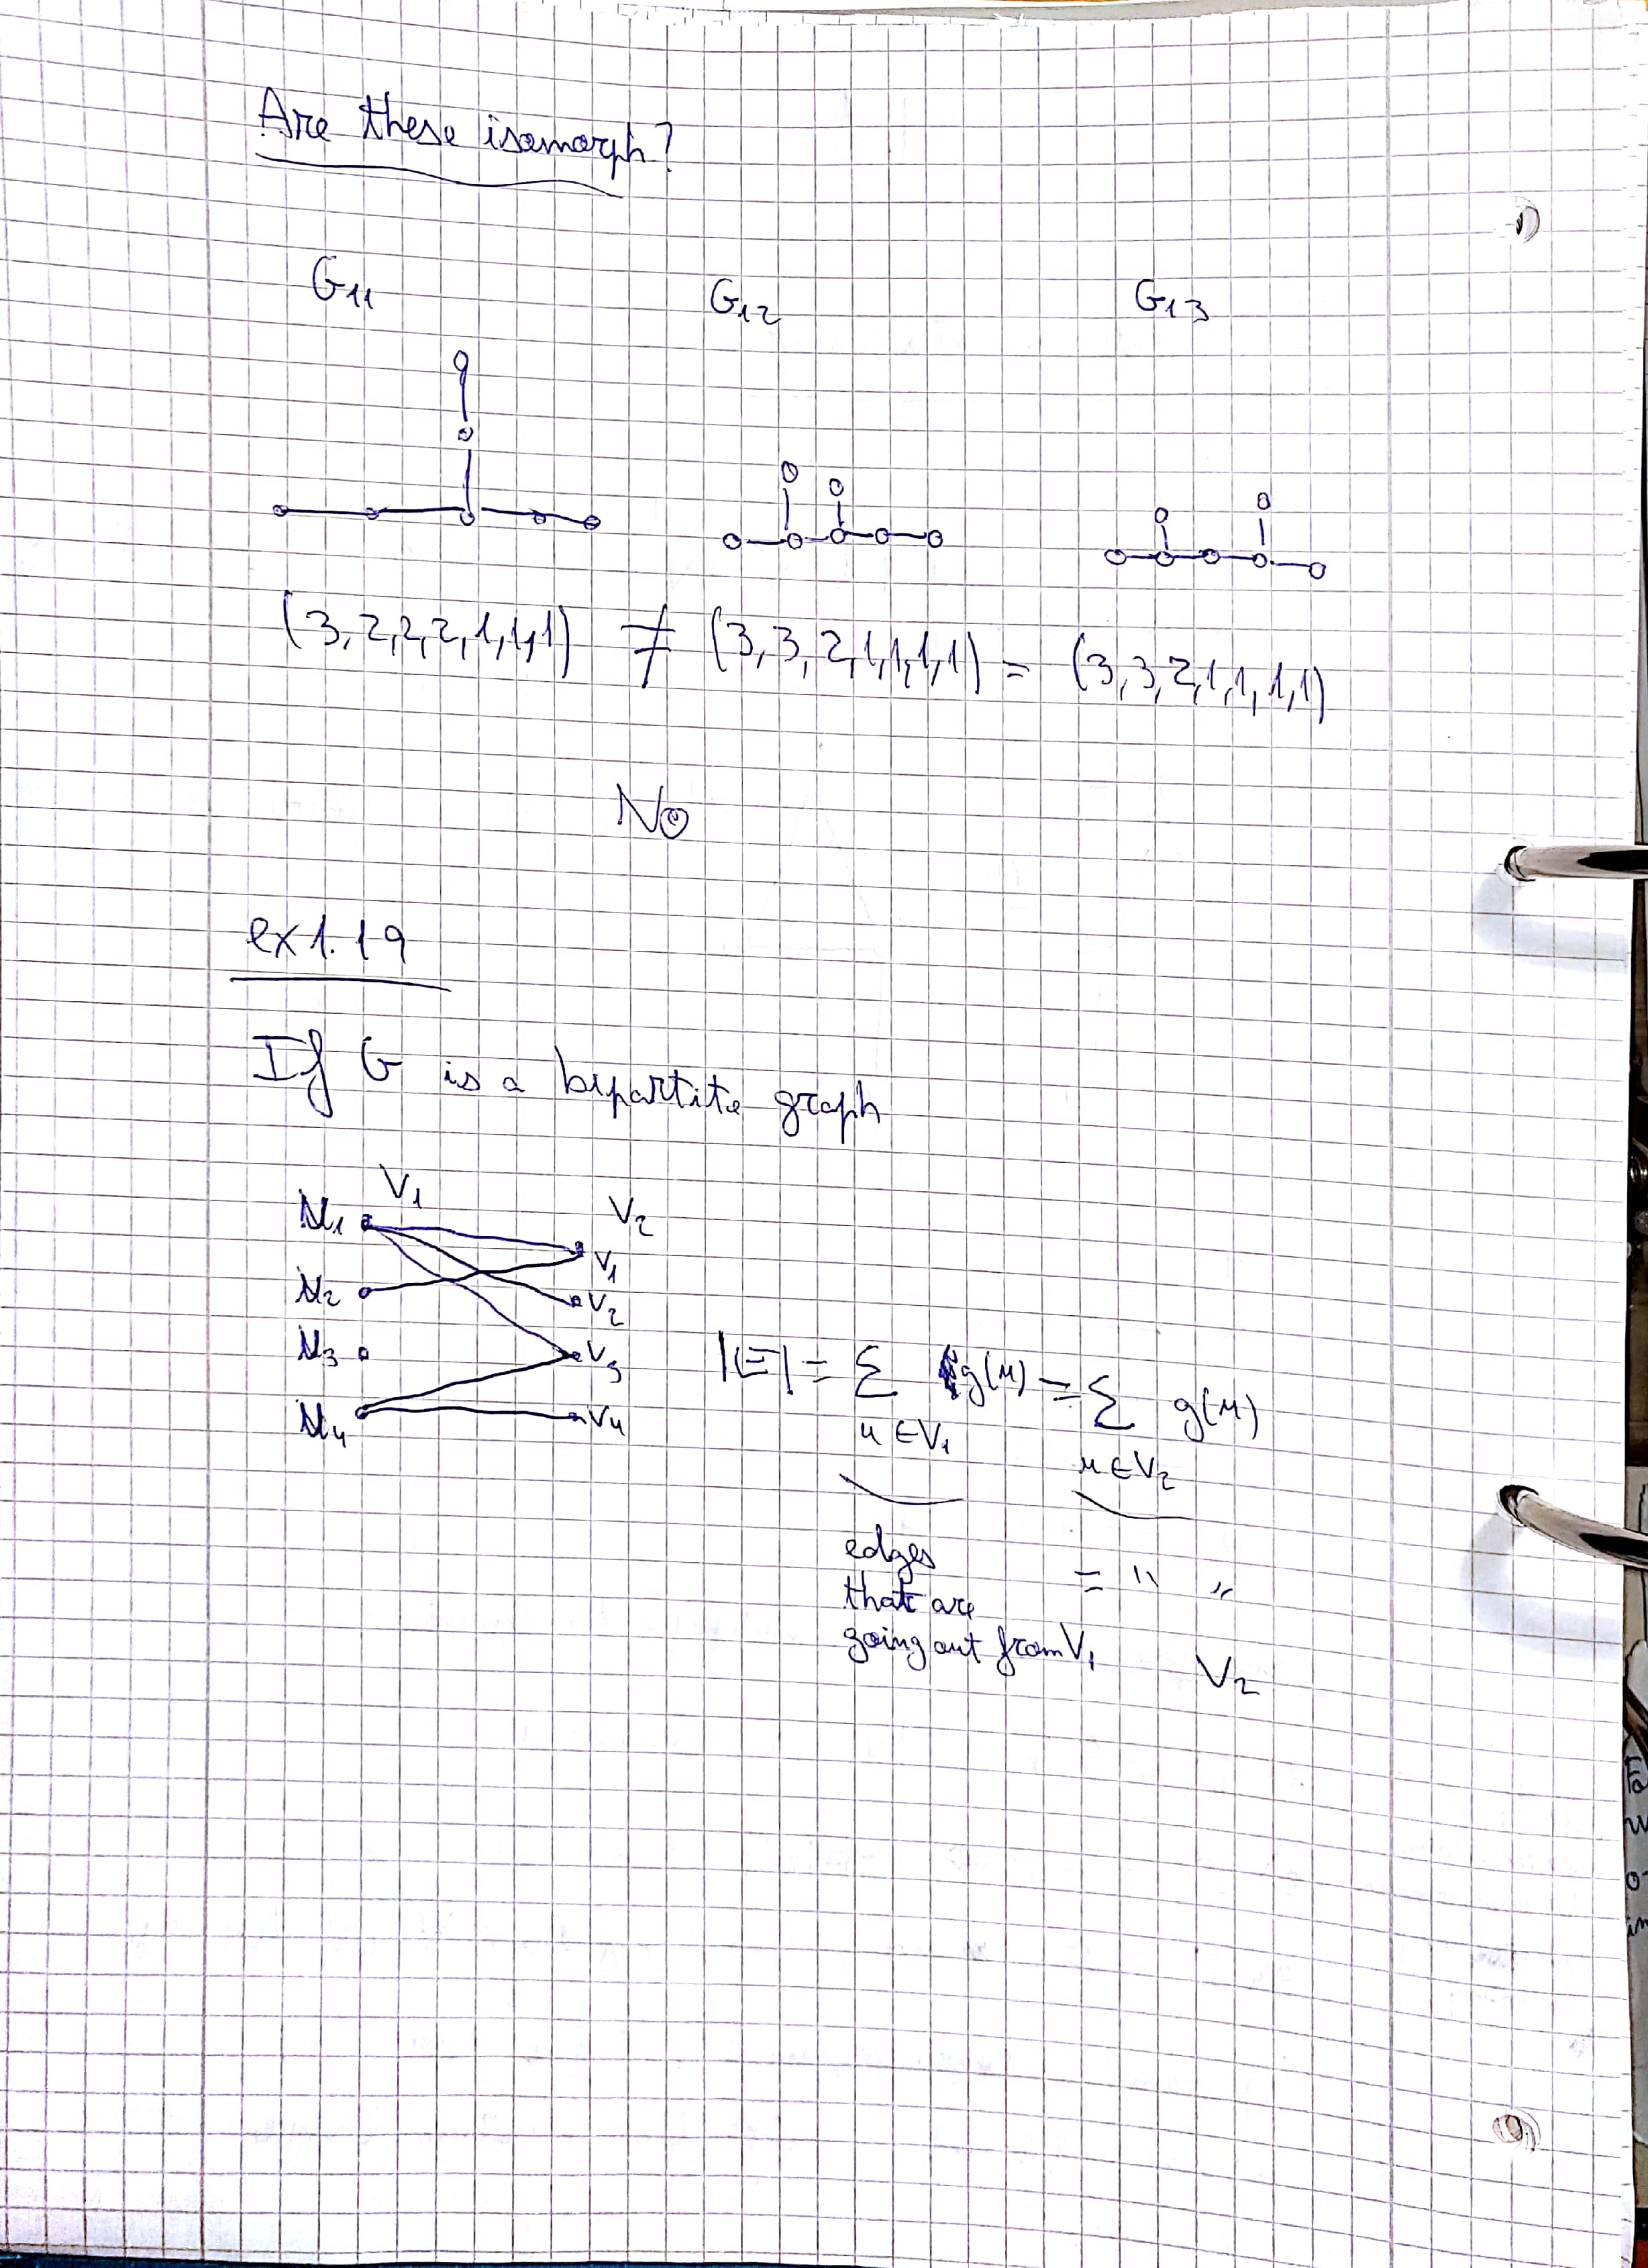 Are these isomorph?
G₁₁ G₁₂ G₁₃
(3,2,2,2,1,1,1) ≠ (3,3,2,1,1,1,1) = (3,3,2,1,1,1,1)
No
ex 1.19
If G is a bipartite graph
V₁ V₂
u₁ v₁
u₂ v₂
u₃ v₃
u₄ v₄
|E| = Σ g(u) = Σ g(u)
u ∈ V₁ u ∈ V₂
edges
that are = " "
going out from V₁ V₂